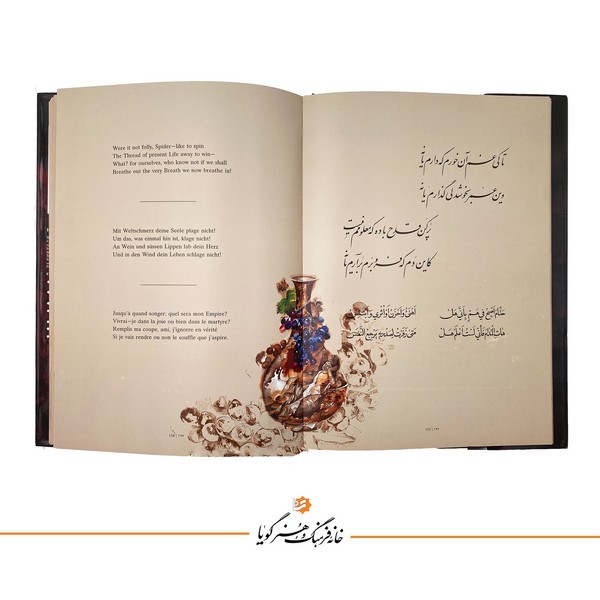 Were it not folly, Spider—like to spin
The Thread of present Life away to win—
What? for ourselves, who know not if we shall
Breathe out the very Breath we now breathe in!
Mit Weltschmerz deine Seele plage nicht!
Um das, was einmal hin ist, klage nicht!
An Wein und süssen Lippen lab dein Herz
Und in den Wind dein Leben schlage nicht!
Jusqu'à quand songer: quel sera mon Empire?
Vivrai—je dans la joie ou bien dans le martyre?
Remplis ma coupe, ami, j'ignore en vérité
Si je vais rendre ou non le souffle que j'aspire.
تا کی غم آن خورم که دارم یا نه
وین عمر به خوشدلی گذارم یا نه
پر کن قدح باده که معلومم نیست
کاین دم که فرو برم برآرم یا نه
خانه فرهنگ و هنر گویا